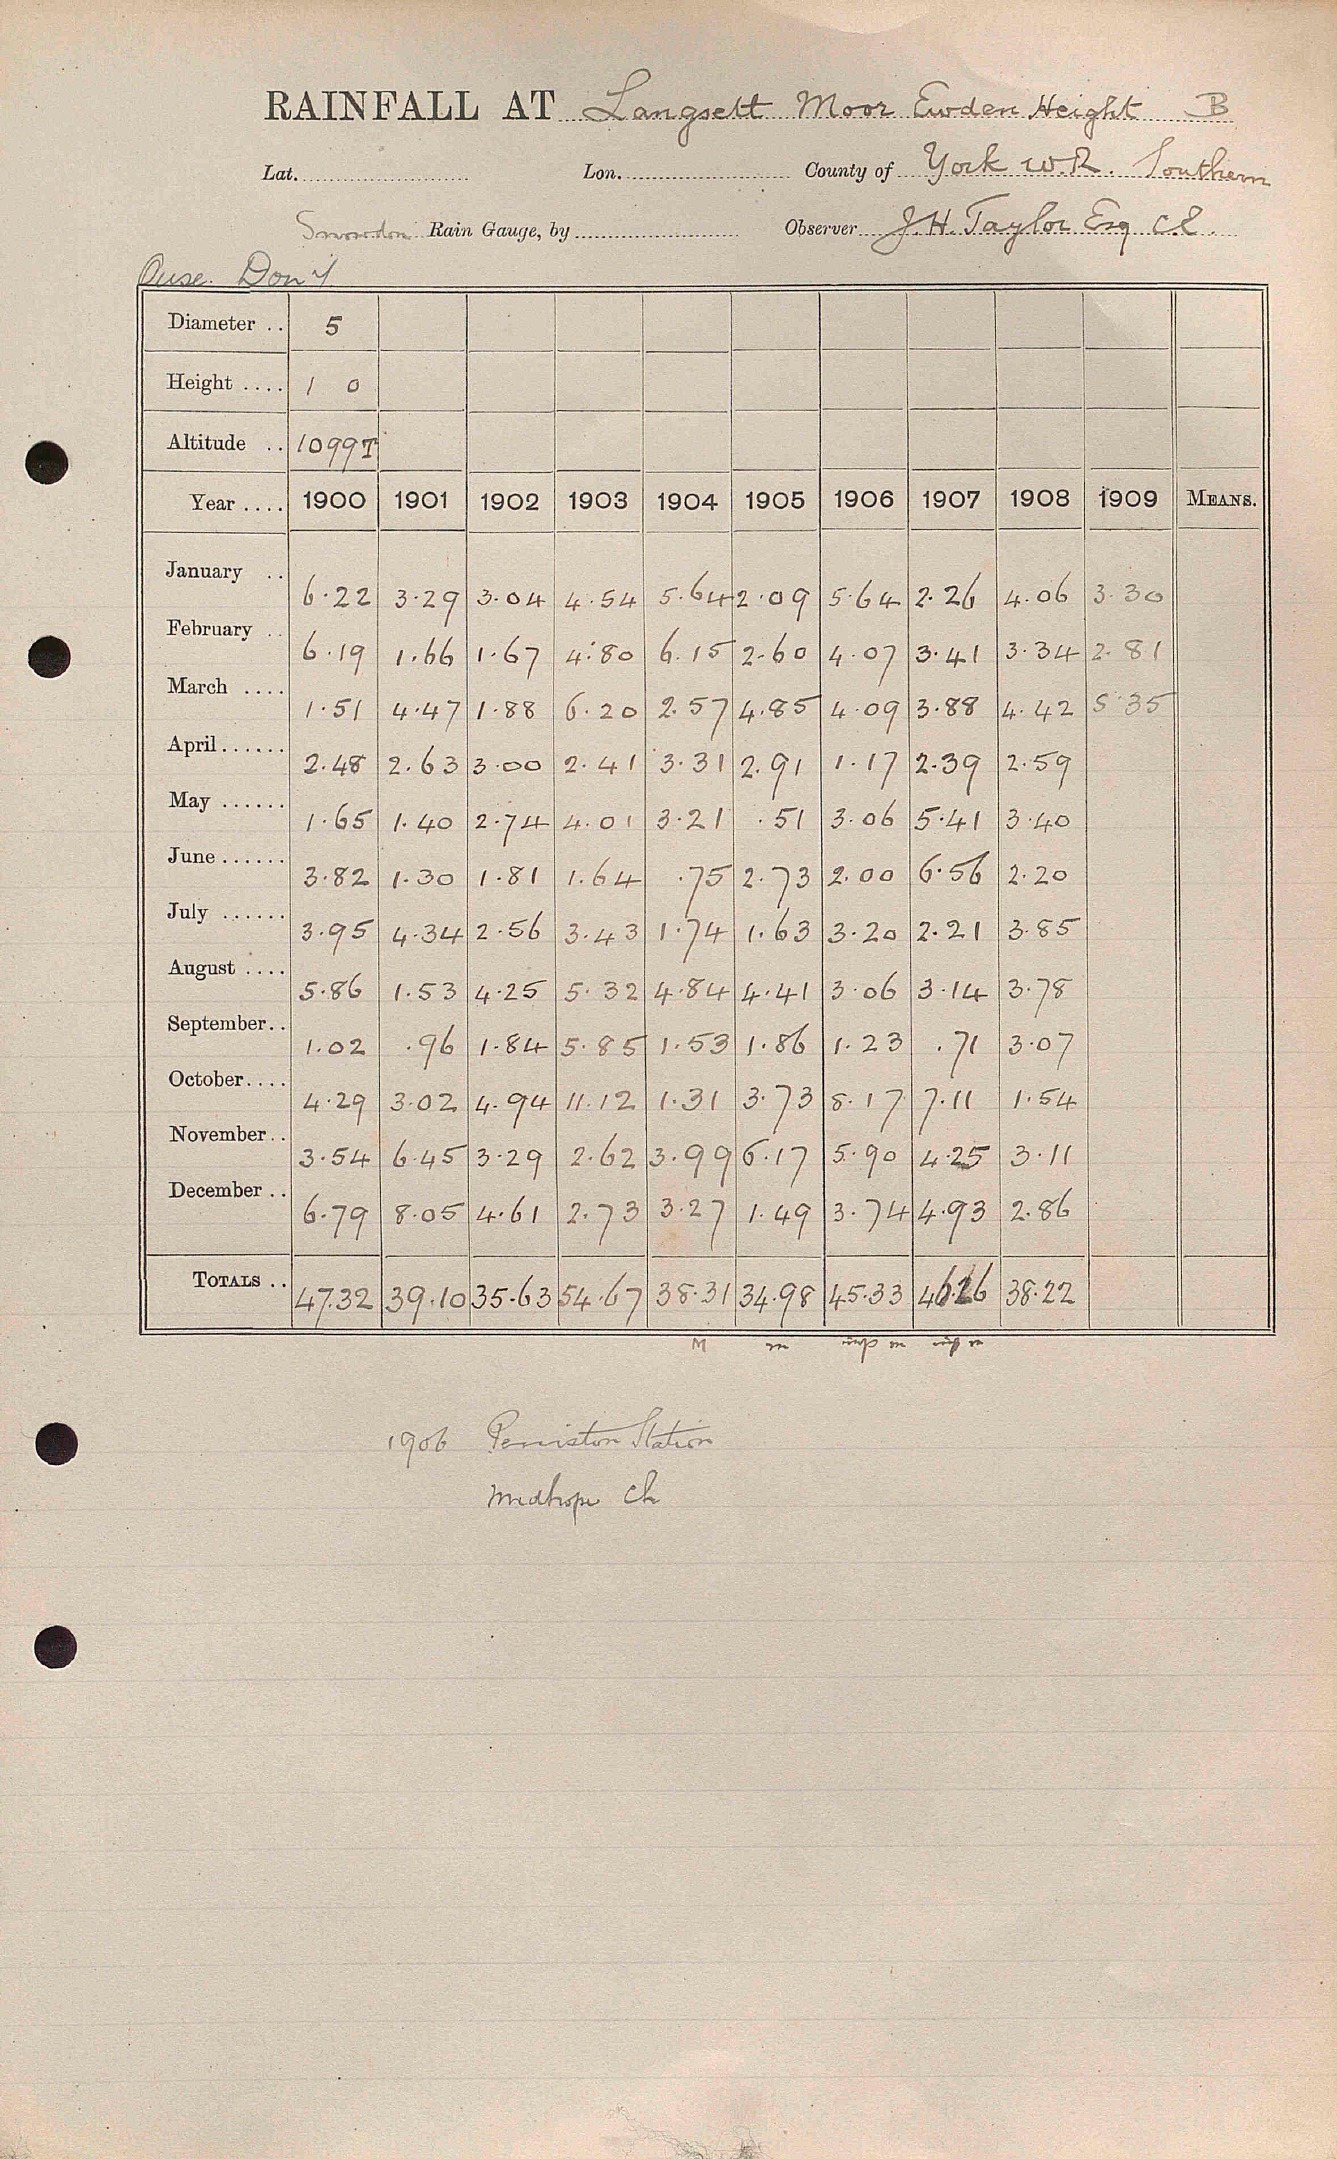 RAINFALL AT Langsett Moor Ewden Height B
Lat. Lon. County of York W.R. Southern
Snowdon Rain Gauge, by Observer J. H. Taylor Esq C.E.
Ouse. Don
Diameter .. 5
Height .... 1 0
Altitude .. 1099T
Year .... 1900 1901 1902 1903 1904 1905 1906 1907 1908 1909 MEANS.
January .. 6.22 3.29 3.04 4.54 5.64 2.09 5.64 2.26 4.06 3.30
February .. 6.19 1.66 1.67 4.80 6.15 2.60 4.07 3.41 3.34 2.81
March .... 1.51 4.47 1.88 6.20 2.57 4.85 4.09 3.88 4.42 5.35
April...... 2.48 2.63 3.00 2.41 3.31 2.91 1.17 2.39 2.59
May ...... 1.65 1.40 2.74 4.01 3.21 .51 3.06 5.41 3.40
June...... 3.82 1.30 1.81 1.64 .75 2.73 2.00 6.56 2.20
July ...... 3.95 4.34 2.56 3.43 1.74 1.63 3.20 2.21 3.85
August .... 5.86 1.53 4.25 5.32 4.84 4.41 3.06 3.14 3.78
September.. 1.02 .96 1.84 5.85 1.53 1.86 1.23 .71 3.07
October.... 4.29 3.02 4.94 11.12 1.31 3.73 8.17 7.11 1.54
November.. 3.54 6.45 3.29 2.62 3.99 6.17 5.90 4.25 3.11
December .. 6.79 8.05 4.61 2.73 3.27 1.49 3.74 4.93 2.86
TOTALS .. 47.32 39.10 35.63 54.67 38.31 34.98 45.33 46.26 38.22
M m m m
1906 Penniston Station
Midhope Ch